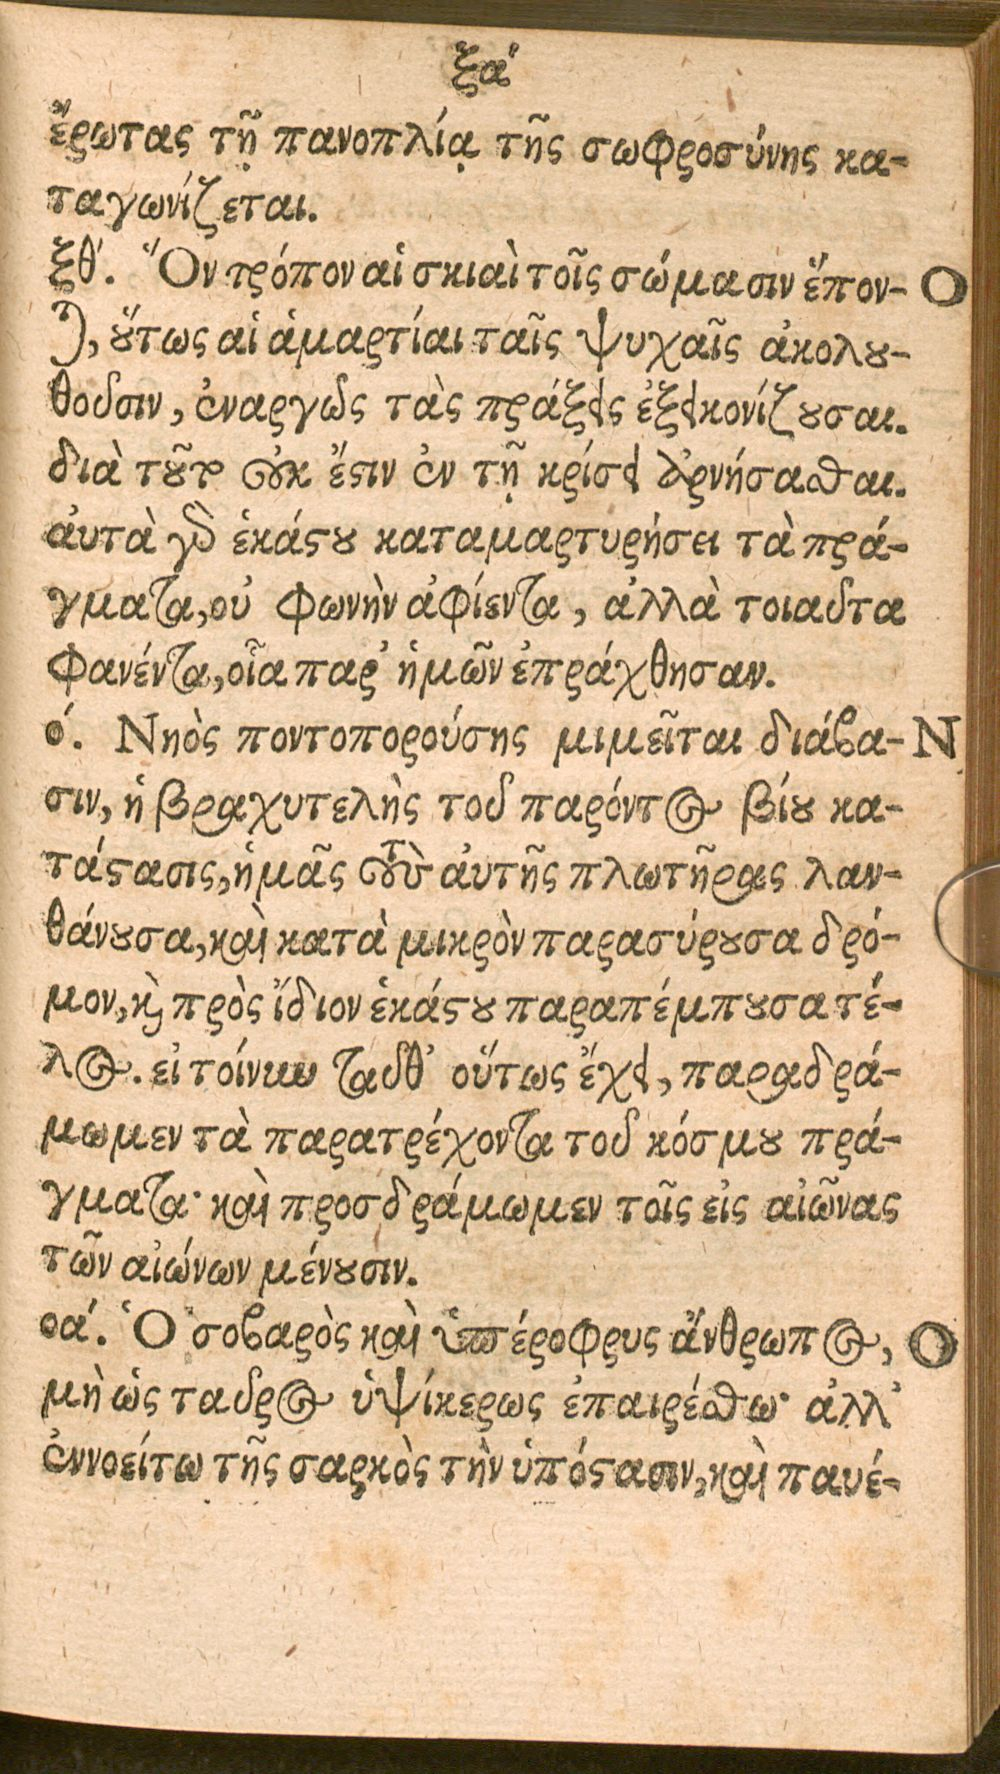 ξα΄
ἔρωτας τῇ πανοπλίᾳ τῆς σωφροσύνης κα-
ταγωνίζεται.
ξθ΄. Ὃν τρόπον αἱ σκιαὶ τοῖς σώμασιν ἕπον- Ο
ται, ὅυτως αἱ ἁμαρτίαι ταῖς ψυχαῖς ἀκολου-
θοῦσιν, ἐναργῶς τὰς πράξεις ἐξεικονίζουσαι.
διὰ τοῦτο οὐκ ἔστιν ἐν τῇ κρίσει ἀρνήσασθαι.
ἀυτὰ γὰρ ἑκάστου καταμαρτυρήσει τὰ πρά-
γματα, οὐ φωνὴν ἀφίεντα, ἀλλὰ τοιαῦτα
φανέντα, οἷα παρ' ἡμῶν ἐπράχθησαν.
ό. Νηὸς ποντοπορούσης μιμεῖται διάβα- Ν
σιν, ἡ βραχυτελὴς τοῦ παρόντος βίου κα-
τάστασις, ἡμᾶς τοὺς ἀυτῆς πλωτῆρας λαν-
θάνουσα, καὶ κατὰ μικρὸν παρασύρουσα δρό-
μον, καὶ πρὸς ἴδιον ἑκάστου παραπέμπουσα τέ-
λος. εἰ τοίνυν ταῦθ' οὕτως ἔχει, παραδρά-
μωμεν τὰ παρατρέχοντα τοῦ κόσμου πρά-
γματα· καὶ προσδράμωμεν τοῖς εἰς αἰῶνας
τῶν αἰώνων μένουσιν.
οα΄. Ὁ σοβαρὸς καὶ ὑπέροφρυς ἄνθρωπος, Ο
μὴ ὡς ταῦρος ὑψίκερως ἐπαιρέσθω· ἀλλ'
ἐννοείτω τῆς σαρκὸς τὴν ὑπόστασιν, καὶ παυέ-